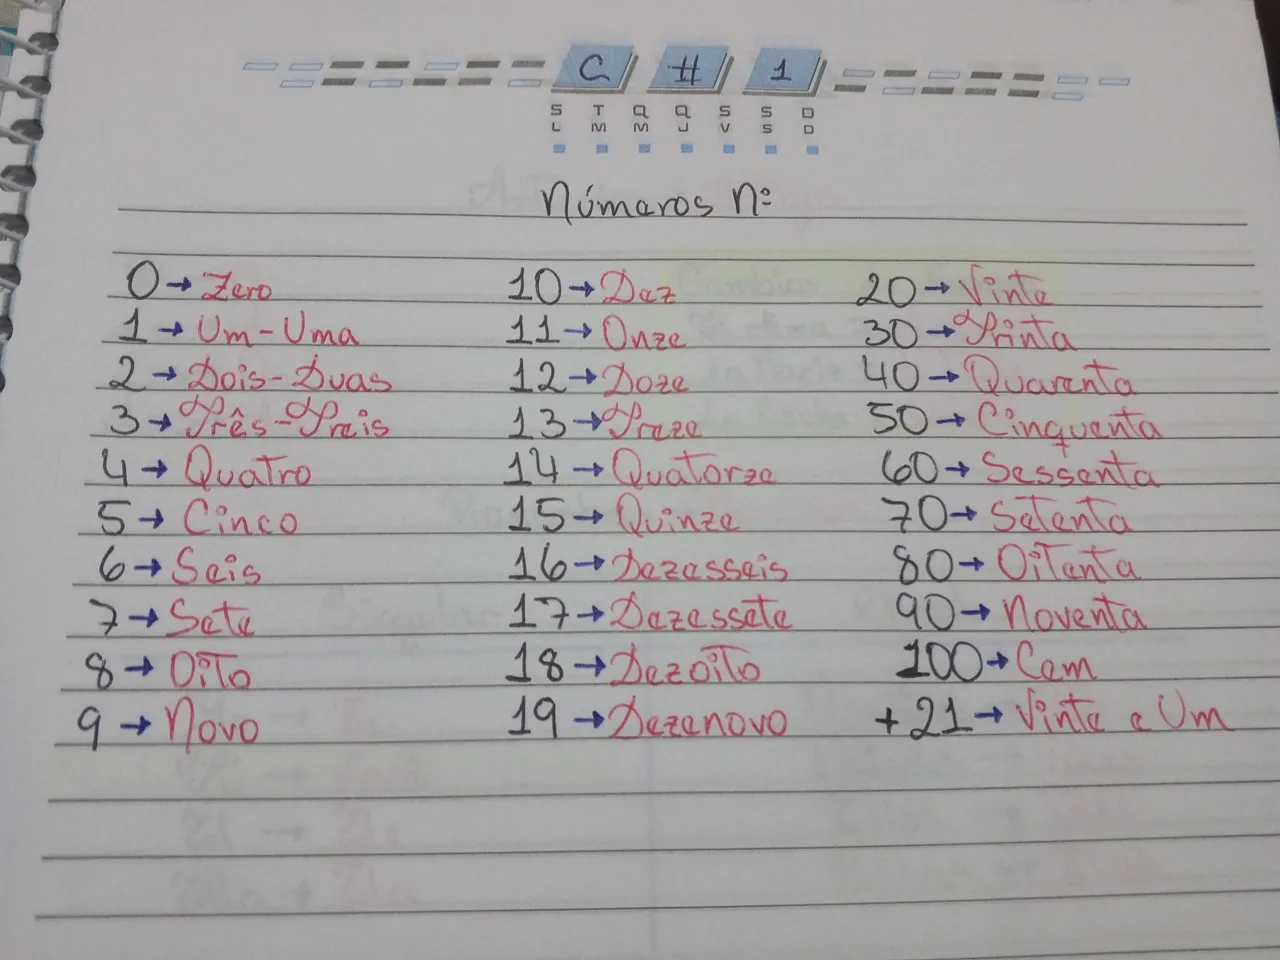 C # 1
S T Q Q S S D
L M M J V S D
Números Nº
0→Zero
1→Um-Uma
2→Dois-Duas
3→Três-Treis
4→Quatro
5→Cinco
6→Seis
7→Sete
8→Oito
9→Novo
10→Dez
11→Onze
12→Doze
13→Treze
14→Quatorze
15→Quinze
16→Dezesseis
17→Dezessete
18→Dezoito
19→Dezenovo
20→Vinte
30→Trinta
40→Quarenta
50→Cinquenta
60→Sessenta
70→Setenta
80→Oitenta
90→Noventa
100→Cem
+21→Vinte e Um